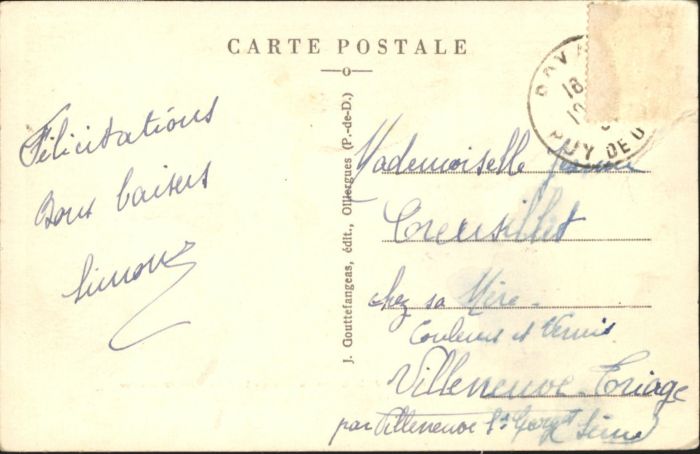 CARTE POSTALE
Félicitations
Bons baisers
Simon
J. Gouttefangeas, édit., Olliergues (P.-de-D.)
PUY DE D
18
Mademoiselle
Creusillet
chez sa Mère
Couleurs et Vernis
Villeneuve-Triage
par Villeneuve St Georges Seine